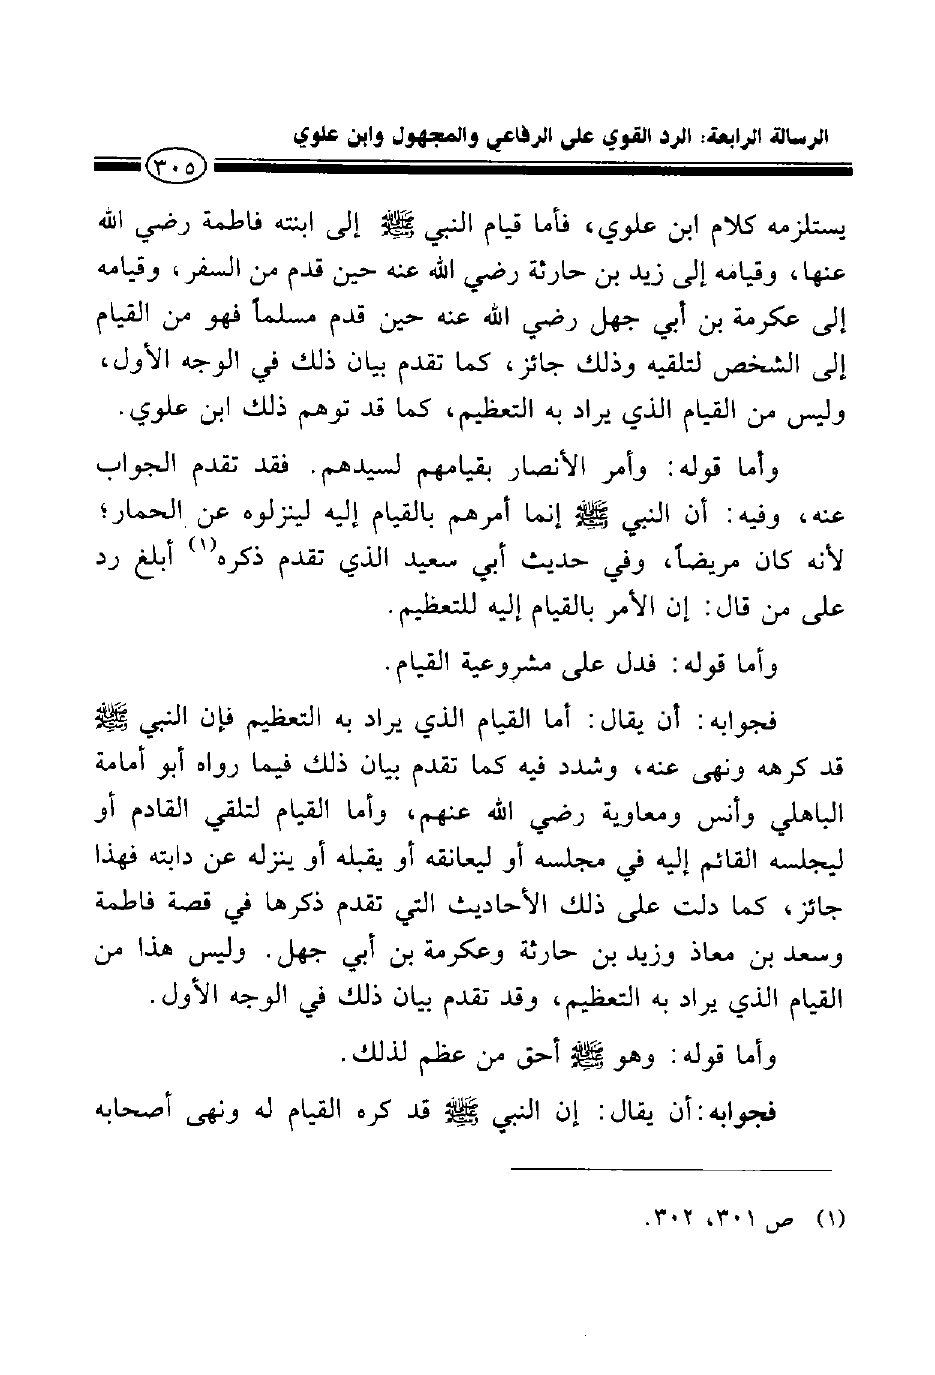 الرسالة الرابعة: الرد القوي على الرفاعي والمجهول وابن علوي
٣٠٥
يستلزمه كلام ابن علوي، فأما قيام النبي ﷺ إلى ابنته فاطمة رضي الله
عنها، وقيامه إلى زيد بن حارثة رضي الله عنه حين قدم من السفر، وقيامه
إلى عكرمة بن أبي جهل رضي الله عنه حين قدم مسلماً فهو من القيام
إلى الشخص لتلقيه وذلك جائز، كما تقدم بيان ذلك في الوجه الأول،
وليس من القيام الذي يراد به التعظيم، كما قد توهم ذلك ابن علوي.
وأما قوله: وأمر الأنصار بقيامهم لسيدهم. فقد تقدم الجواب
عنه، وفيه: أن النبي ﷺ إنما أمرهم بالقيام إليه لينزلوه عن الحمار؛
لأنه كان مريضاً، وفي حديث أبي سعيد الذي تقدم ذكره(١) أبلغ رد
على من قال: إن الأمر بالقيام إليه للتعظيم.
وأما قوله: فدل على مشروعية القيام.
فجوابه: أن يقال: أما القيام الذي يراد به التعظيم فإن النبي ﷺ
قد كرهه ونهى عنه، وشدد فيه كما تقدم بيان ذلك فيما رواه أبو أمامة
الباهلي وأنس ومعاوية رضي الله عنهم، وأما القيام لتلقي القادم أو
ليجلسه القائم إليه في مجلسه أو ليعانقه أو يقبله أو ينزله عن دابته فهذا
جائز، كما دلت على ذلك الأحاديث التي تقدم ذكرها في قصة فاطمة
وسعد بن معاذ وزيد بن حارثة وعكرمة بن أبي جهل. وليس هذا من
القيام الذي يراد به التعظيم، وقد تقدم بيان ذلك في الوجه الأول.
وأما قوله: وهو ﷺ أحق من عظم لذلك.
فجوابه: أن يقال: إن النبي ﷺ قد كره القيام له ونهى أصحابه
(١) ص ٣٠١، ٣٠٢.